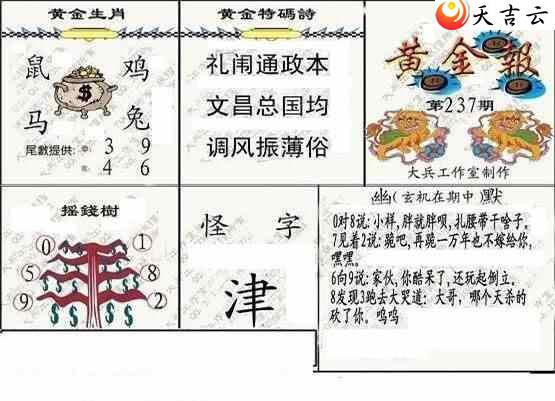 天吉云
黄金生肖
鼠
鸡
马
兔
尾數提供:
3 9
4 6
黄金特碼詩
礼闹通政本
文昌总国均
调风振薄俗
黄金報
第237期
大兵工作室制作
摇錢樹
0
1
5
8
9
2
怪字
津
幽(玄机在期中)默
0对8说:小样,胖就胖呗,扎腰带干啥子。
7见着2说:跪吧,再跪一万年也不嫁给你,
嘿嘿。
6向9说:家伙,你酷呆了,还玩起倒立。
8发现3跑去大哭道:大哥,哪个天杀的
砍了你。呜呜